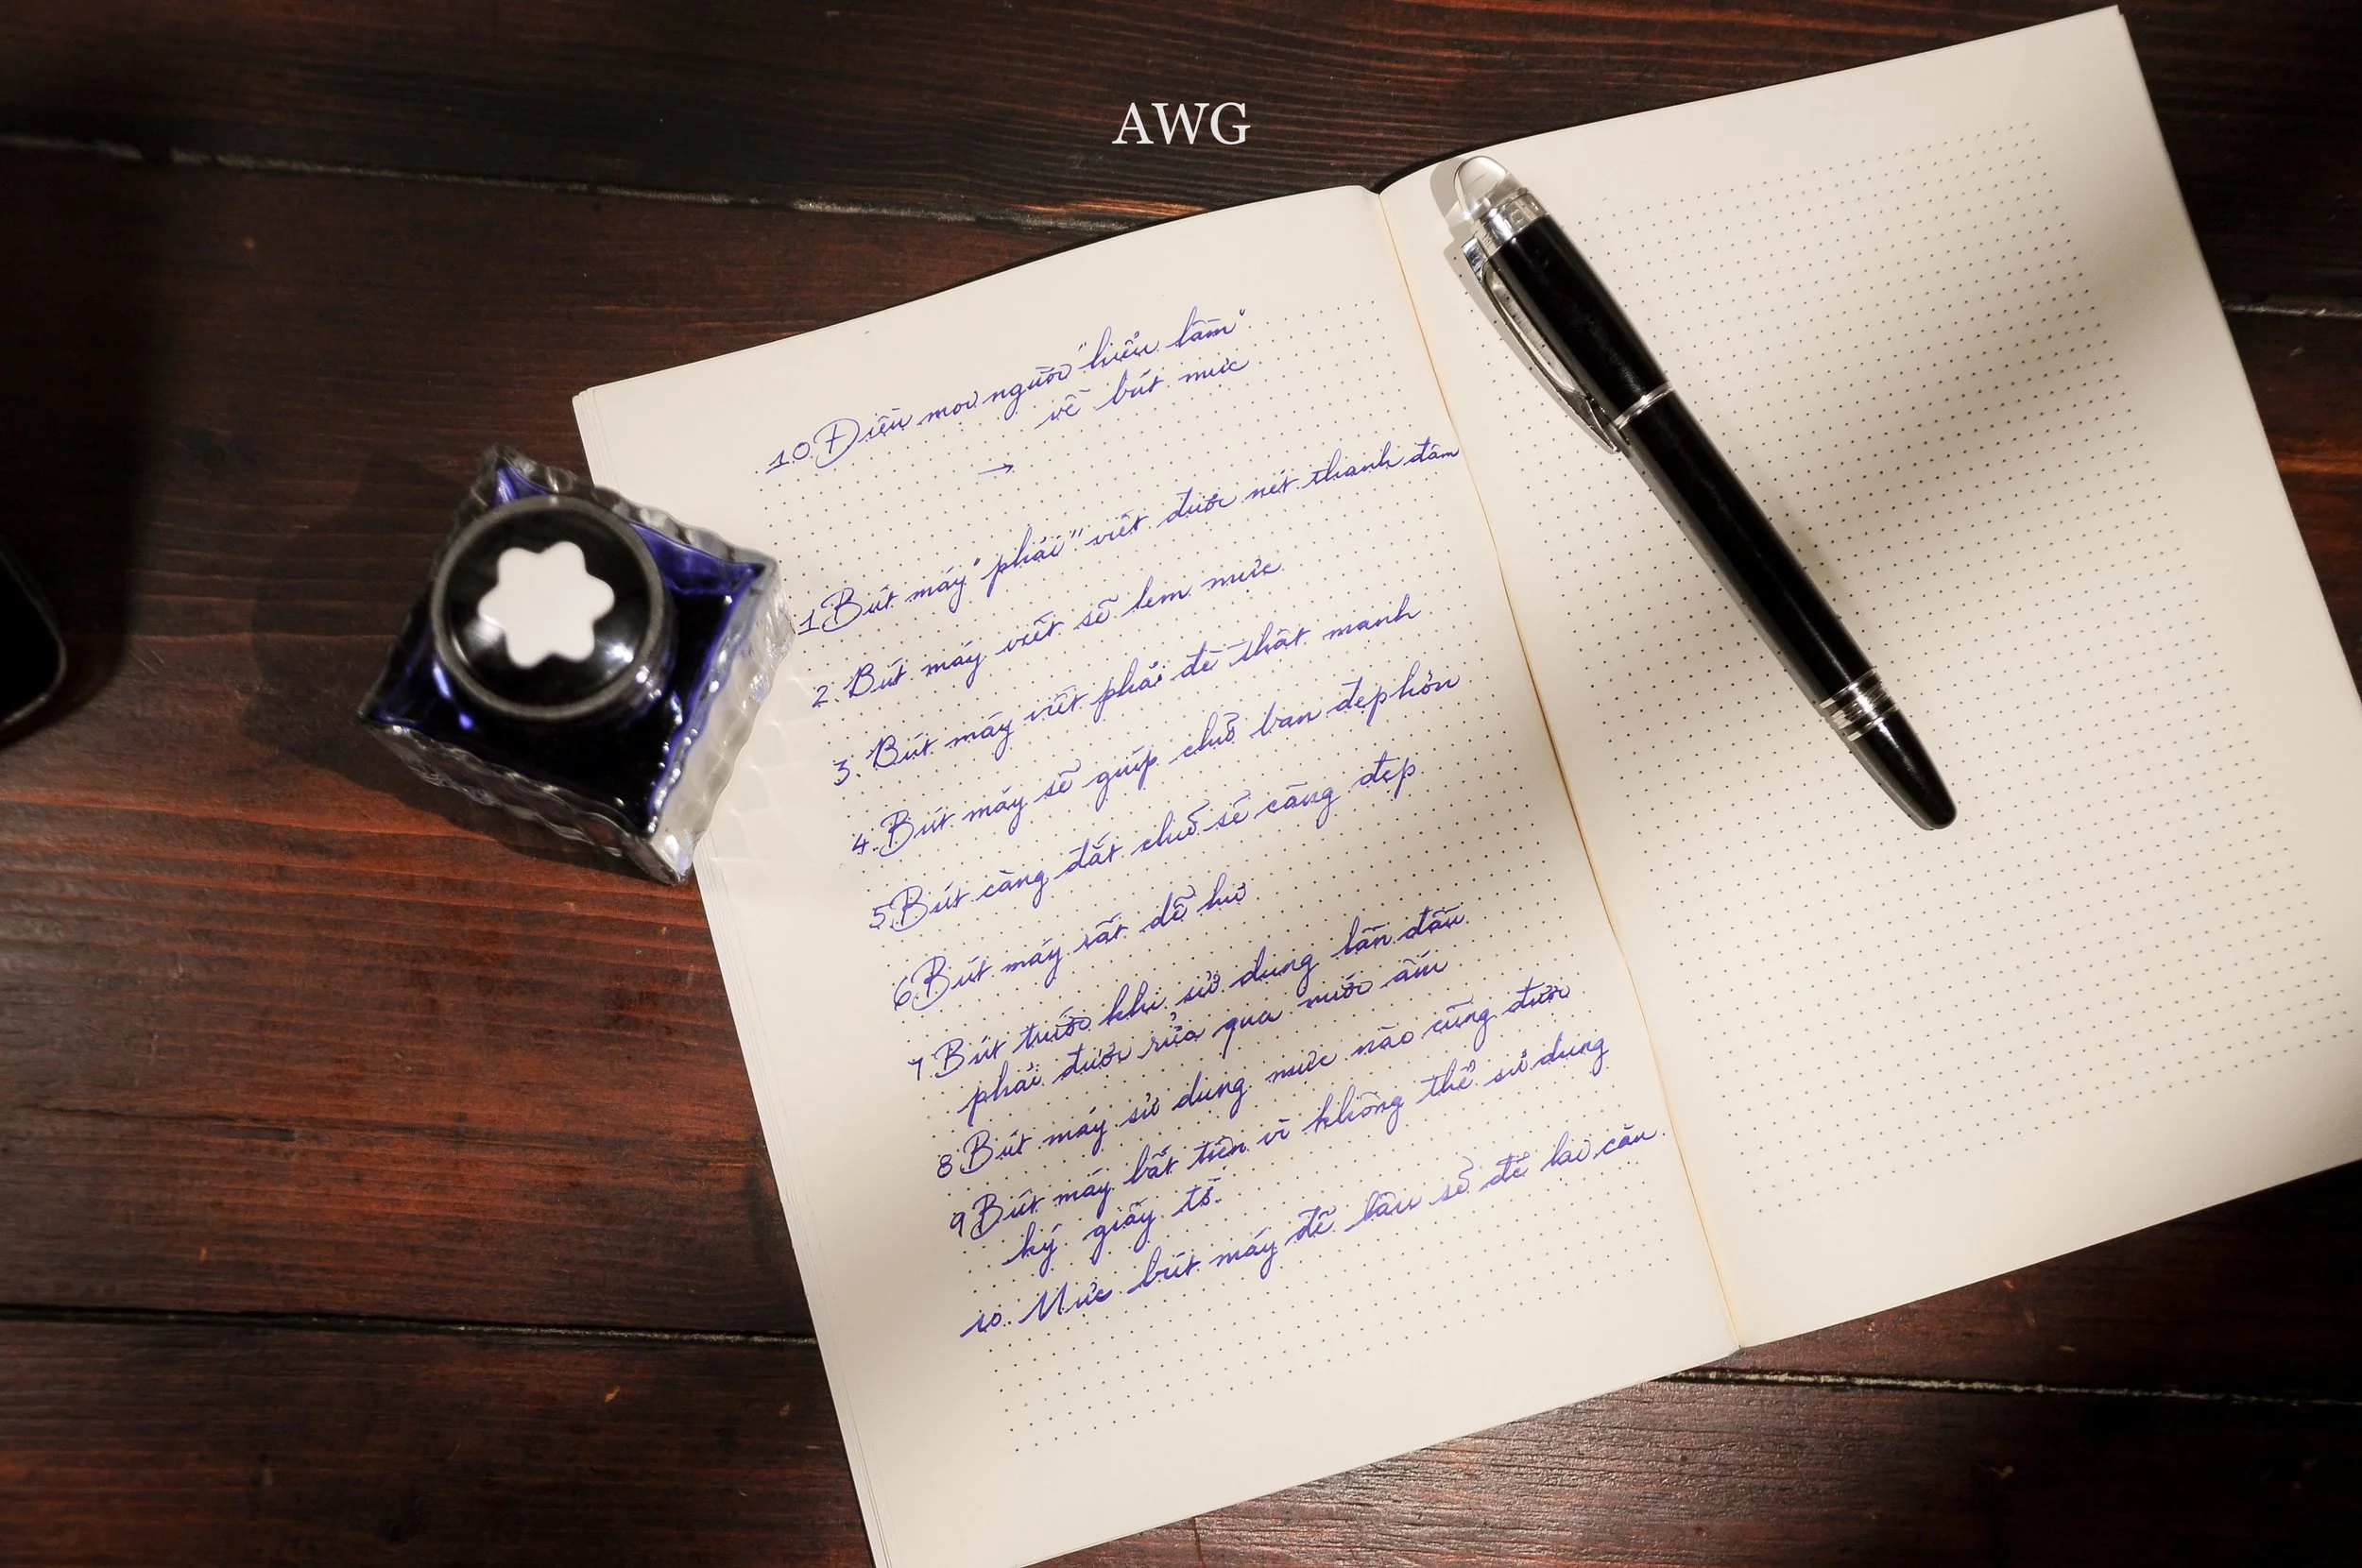 AWG
10 Điều mọi người "hiểu lầm"
về bút mực
→
1 Bút máy "phải" viết được nét thanh đậm
2. Bút máy viết sẽ lem mực
3. Bút máy viết phải đè thật mạnh
4. Bút máy sẽ giúp chữ bạn đẹp hơn
5 Bút càng đắt chữ sẽ càng đẹp
6 Bút máy rất dễ hư
7 Bút trước khi sử dụng lần đầu
phải được rửa qua nước ấm
8 Bút máy sử dụng mực nào cũng được
9 Bút máy bất tiện vì không thể sử dụng
ký giấy tờ.
10. Mực bút máy để lâu sẽ để lại cặn.